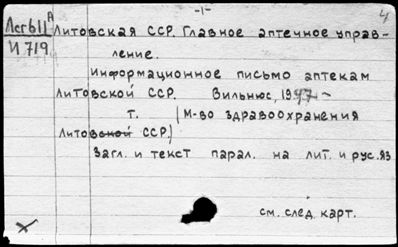 -1-
4
Лсг6Ш А
И719
Литовская ССР. Главное аптечное управ-
ление.
Информационное письмо аптекам
Литовской ССР. Вильнюс, 1947-
т. (М-во здравоохранения
Литовской ССР)
Загл. и текст парал. на лит. и рус. яз
см. след. карт.